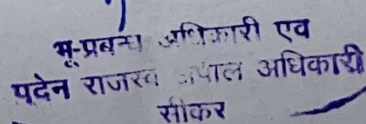 भू-प्रबन्ध अधिकारी एव
पदेन राजस्व अधिकारी
सीकर